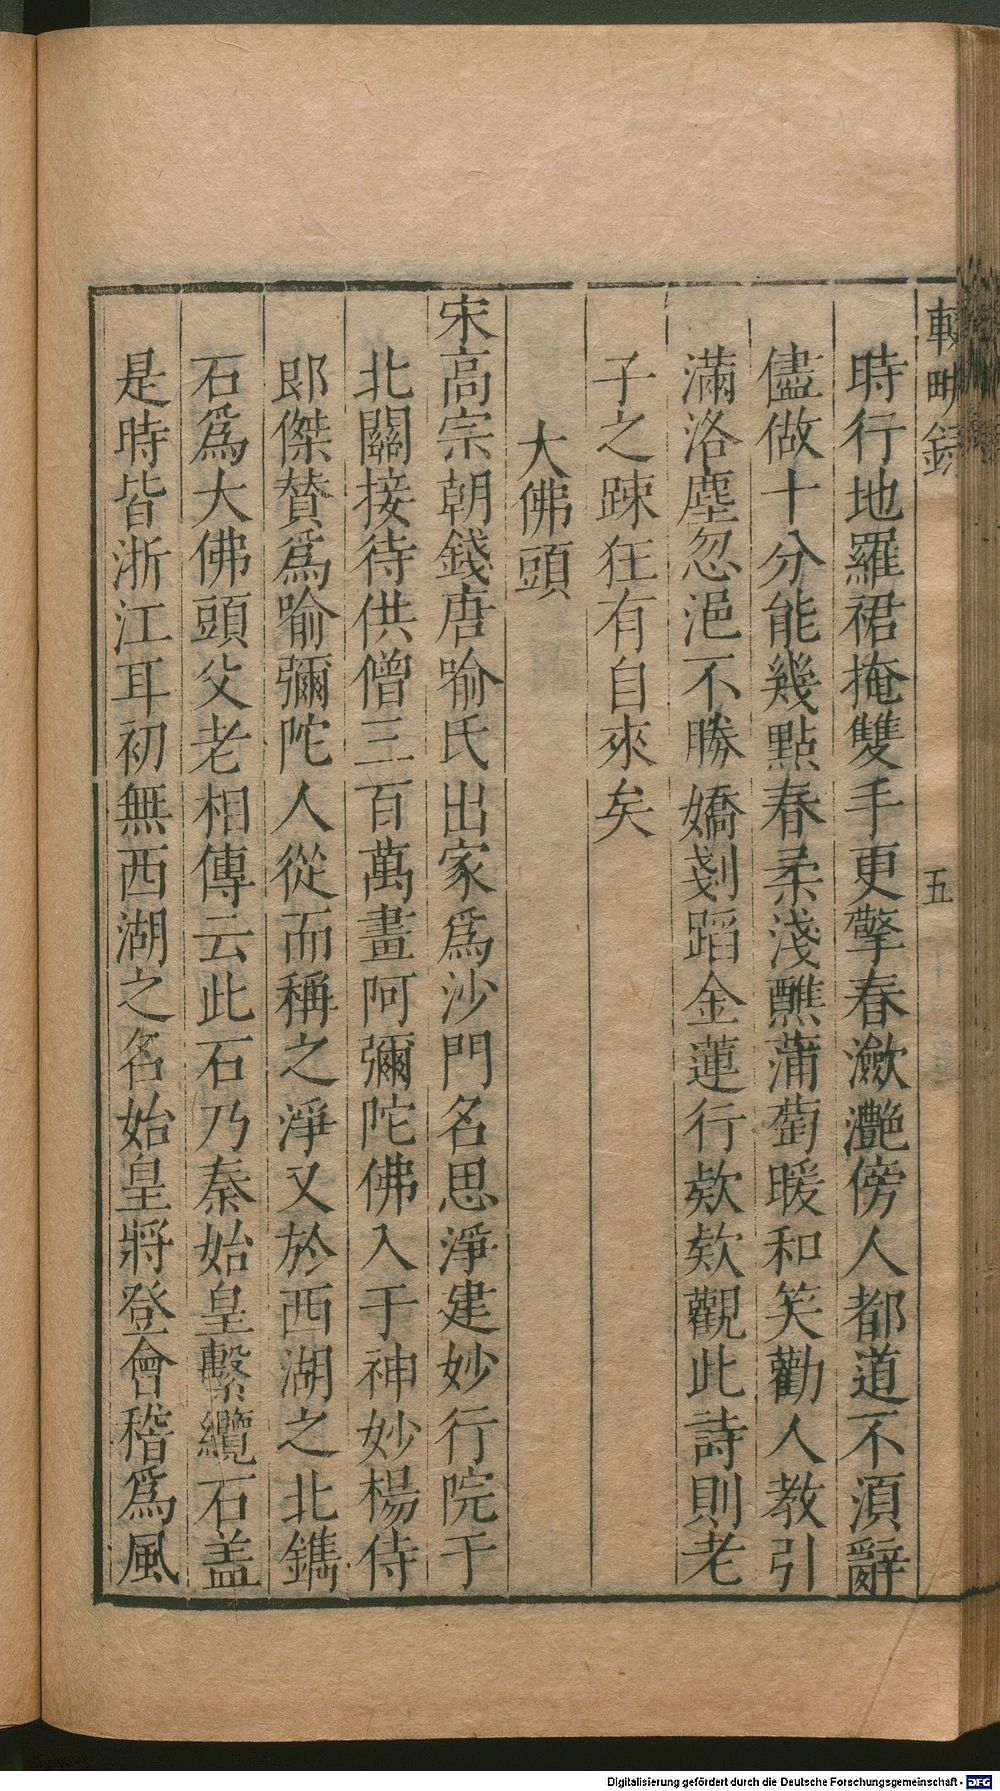 輟畊録
五
時行地羅裙掩雙手更擎春瀲灔傍人都道不湏辭
儘做十分能幾點春柔淺醮蒲萄暖和笑勸人教引
滿洛塵忽浥不勝嬌剗蹈金蓮行欵欵觀此詩則老
子之踈狂有自來矣
大佛頭
宋高宗朝錢唐喻氏出家爲沙門名思淨建妙行院于
北關接待供僧三百萬畫阿彌陀佛入于神妙楊侍
郎傑賛爲喻彌陀人從而稱之淨又於西湖之北鐫
石爲大佛頭父老相傳云此石乃秦始皇繫纜石盖
是時皆浙江耳初無西湖之名始皇將登會稽爲風
Digitalisierung gefördert durch die Deutsche Forschungsgemeinschaft - DFG